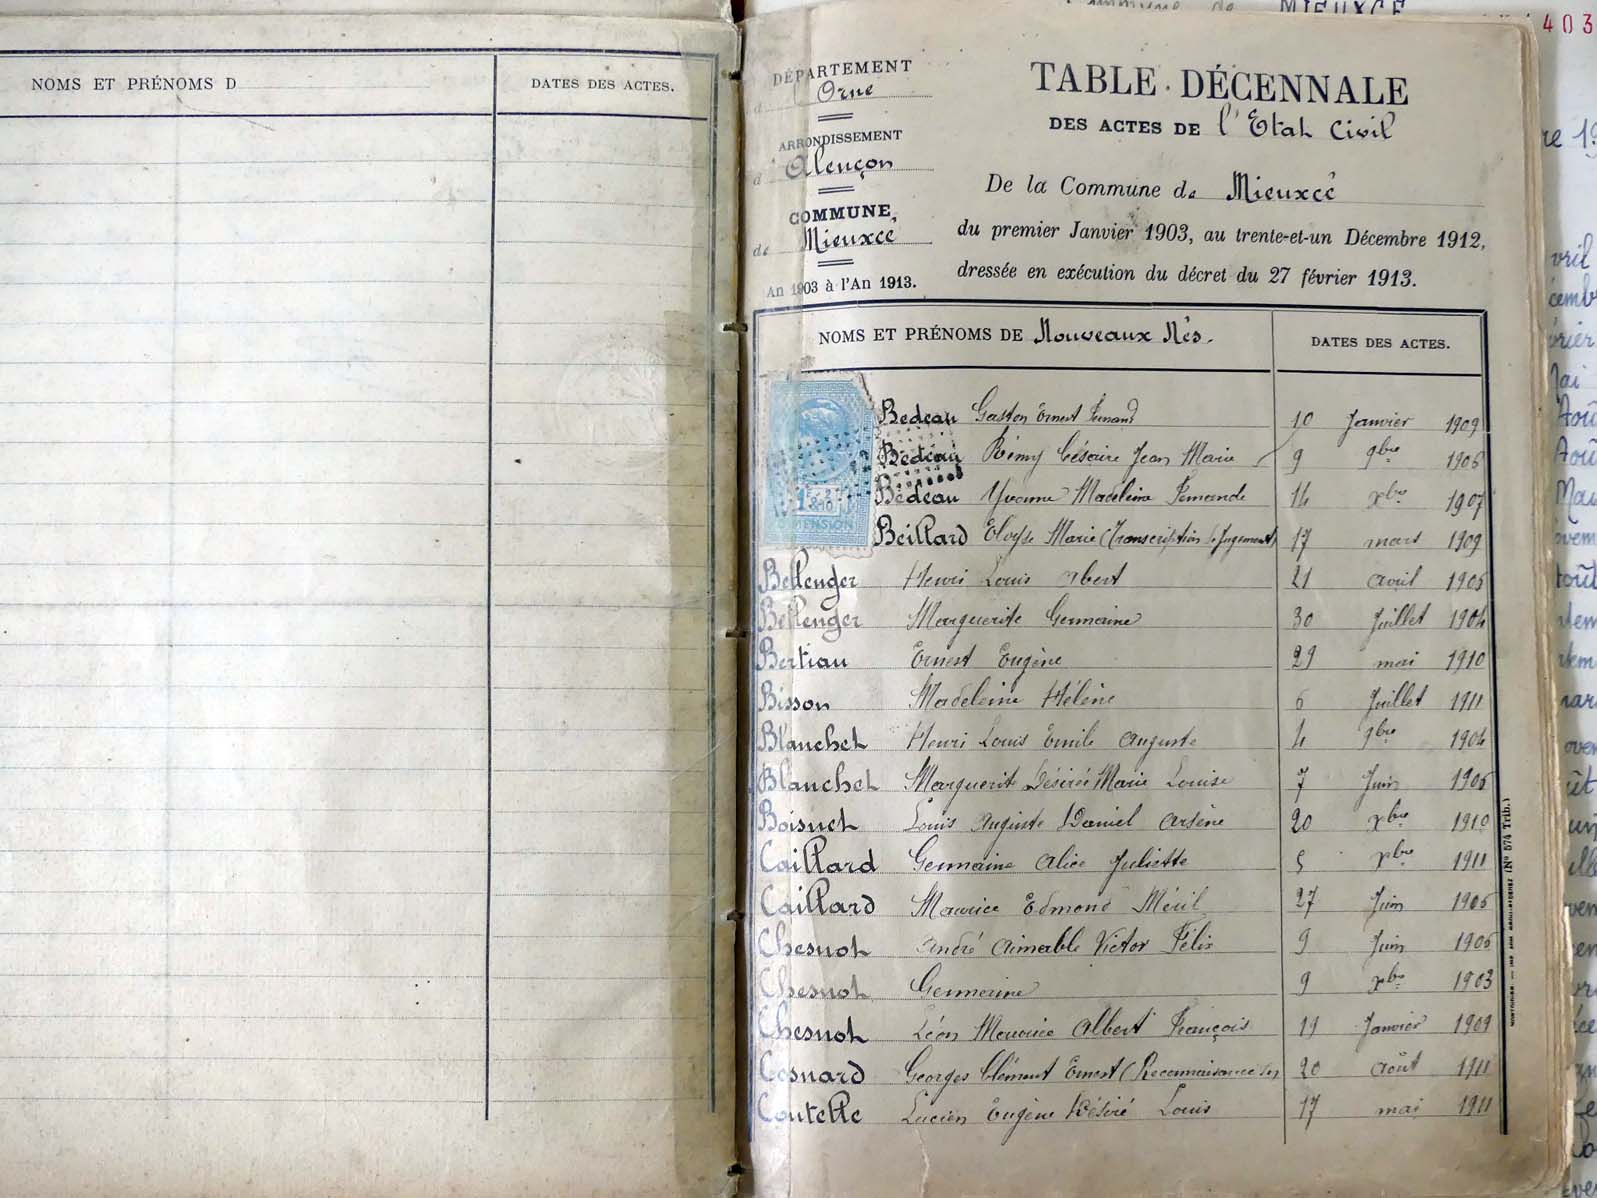 NOMS ET PRÉNOMS D
DATES DES ACTES.
403
DÉPARTEMENT
d Orne
ARRONDISSEMENT
d Alençon
COMMUNE
de Mieuxcé
An 1903 à l'An 1913.
TABLE DÉCENNALE
DES ACTES DE l'Etat Civil
De la Commune de Mieuxcé
du premier Janvier 1903, au trente-et-un Décembre 1912,
dressée en exécution du décret du 27 février 1913.
NOMS ET PRÉNOMS DE Nouveaux Nés. DATES DES ACTES.
Bedeau Gaston Ernest Fernand 10 Janvier 1909
Bedeau Rémy Césaire Jean Marie 9 9bre 1905
Bedeau Yvonne Madeleine Fernande 14 xbre 1907
Beillard Eloyse Marie (Transcription de Jugement) 17 mars 1909
Bellenger Henri Louis Albert 21 avril 1905
Bellenger Marguerite Germaine 30 Juillet 1904
Bertiau Ernest Eugène 29 mai 1910
Bisson Madeleine Hélène 6 Juillet 1911
Blanchet Henri Louis Emile Auguste 4 9bre 1904
Blanchet Marguerit Désirée Marie Louise 7 Juin 1905
Boisnet Louis Auguste Daniel Arsène 20 xbre 1910
Caillard Germaine Alice Juliette 5 xbre 1911
Caillard Maurice Edmond Méril 27 Juin 1905
Chesnot André Aimable Victor Félix 9 Juin 1905
Chesnot Germaine 9 xbre 1903
Chesnot Léon Maurice Albert François 19 Janvier 1909
Cosnard Georges Clément Ernest (Reconnaissance de) 20 août 1911
Coutelle Lucien Eugène Désiré Louis 17 mai 1911
DIMENSION
(No 574 Trib.)